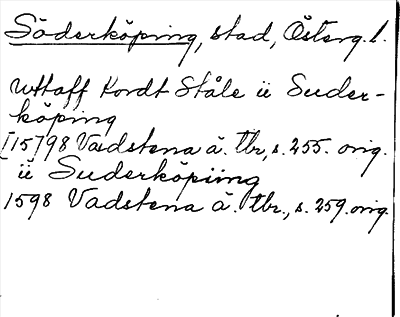 Söderköping, stad, Österg. l.
uttaff Kordt Ståle ü Suder-
köping
[15]98 Vadstena ä. tbr, s. 255. orig.
ü Suderköpiing
1598 Vadstena ä. tbr., s. 259. orig.